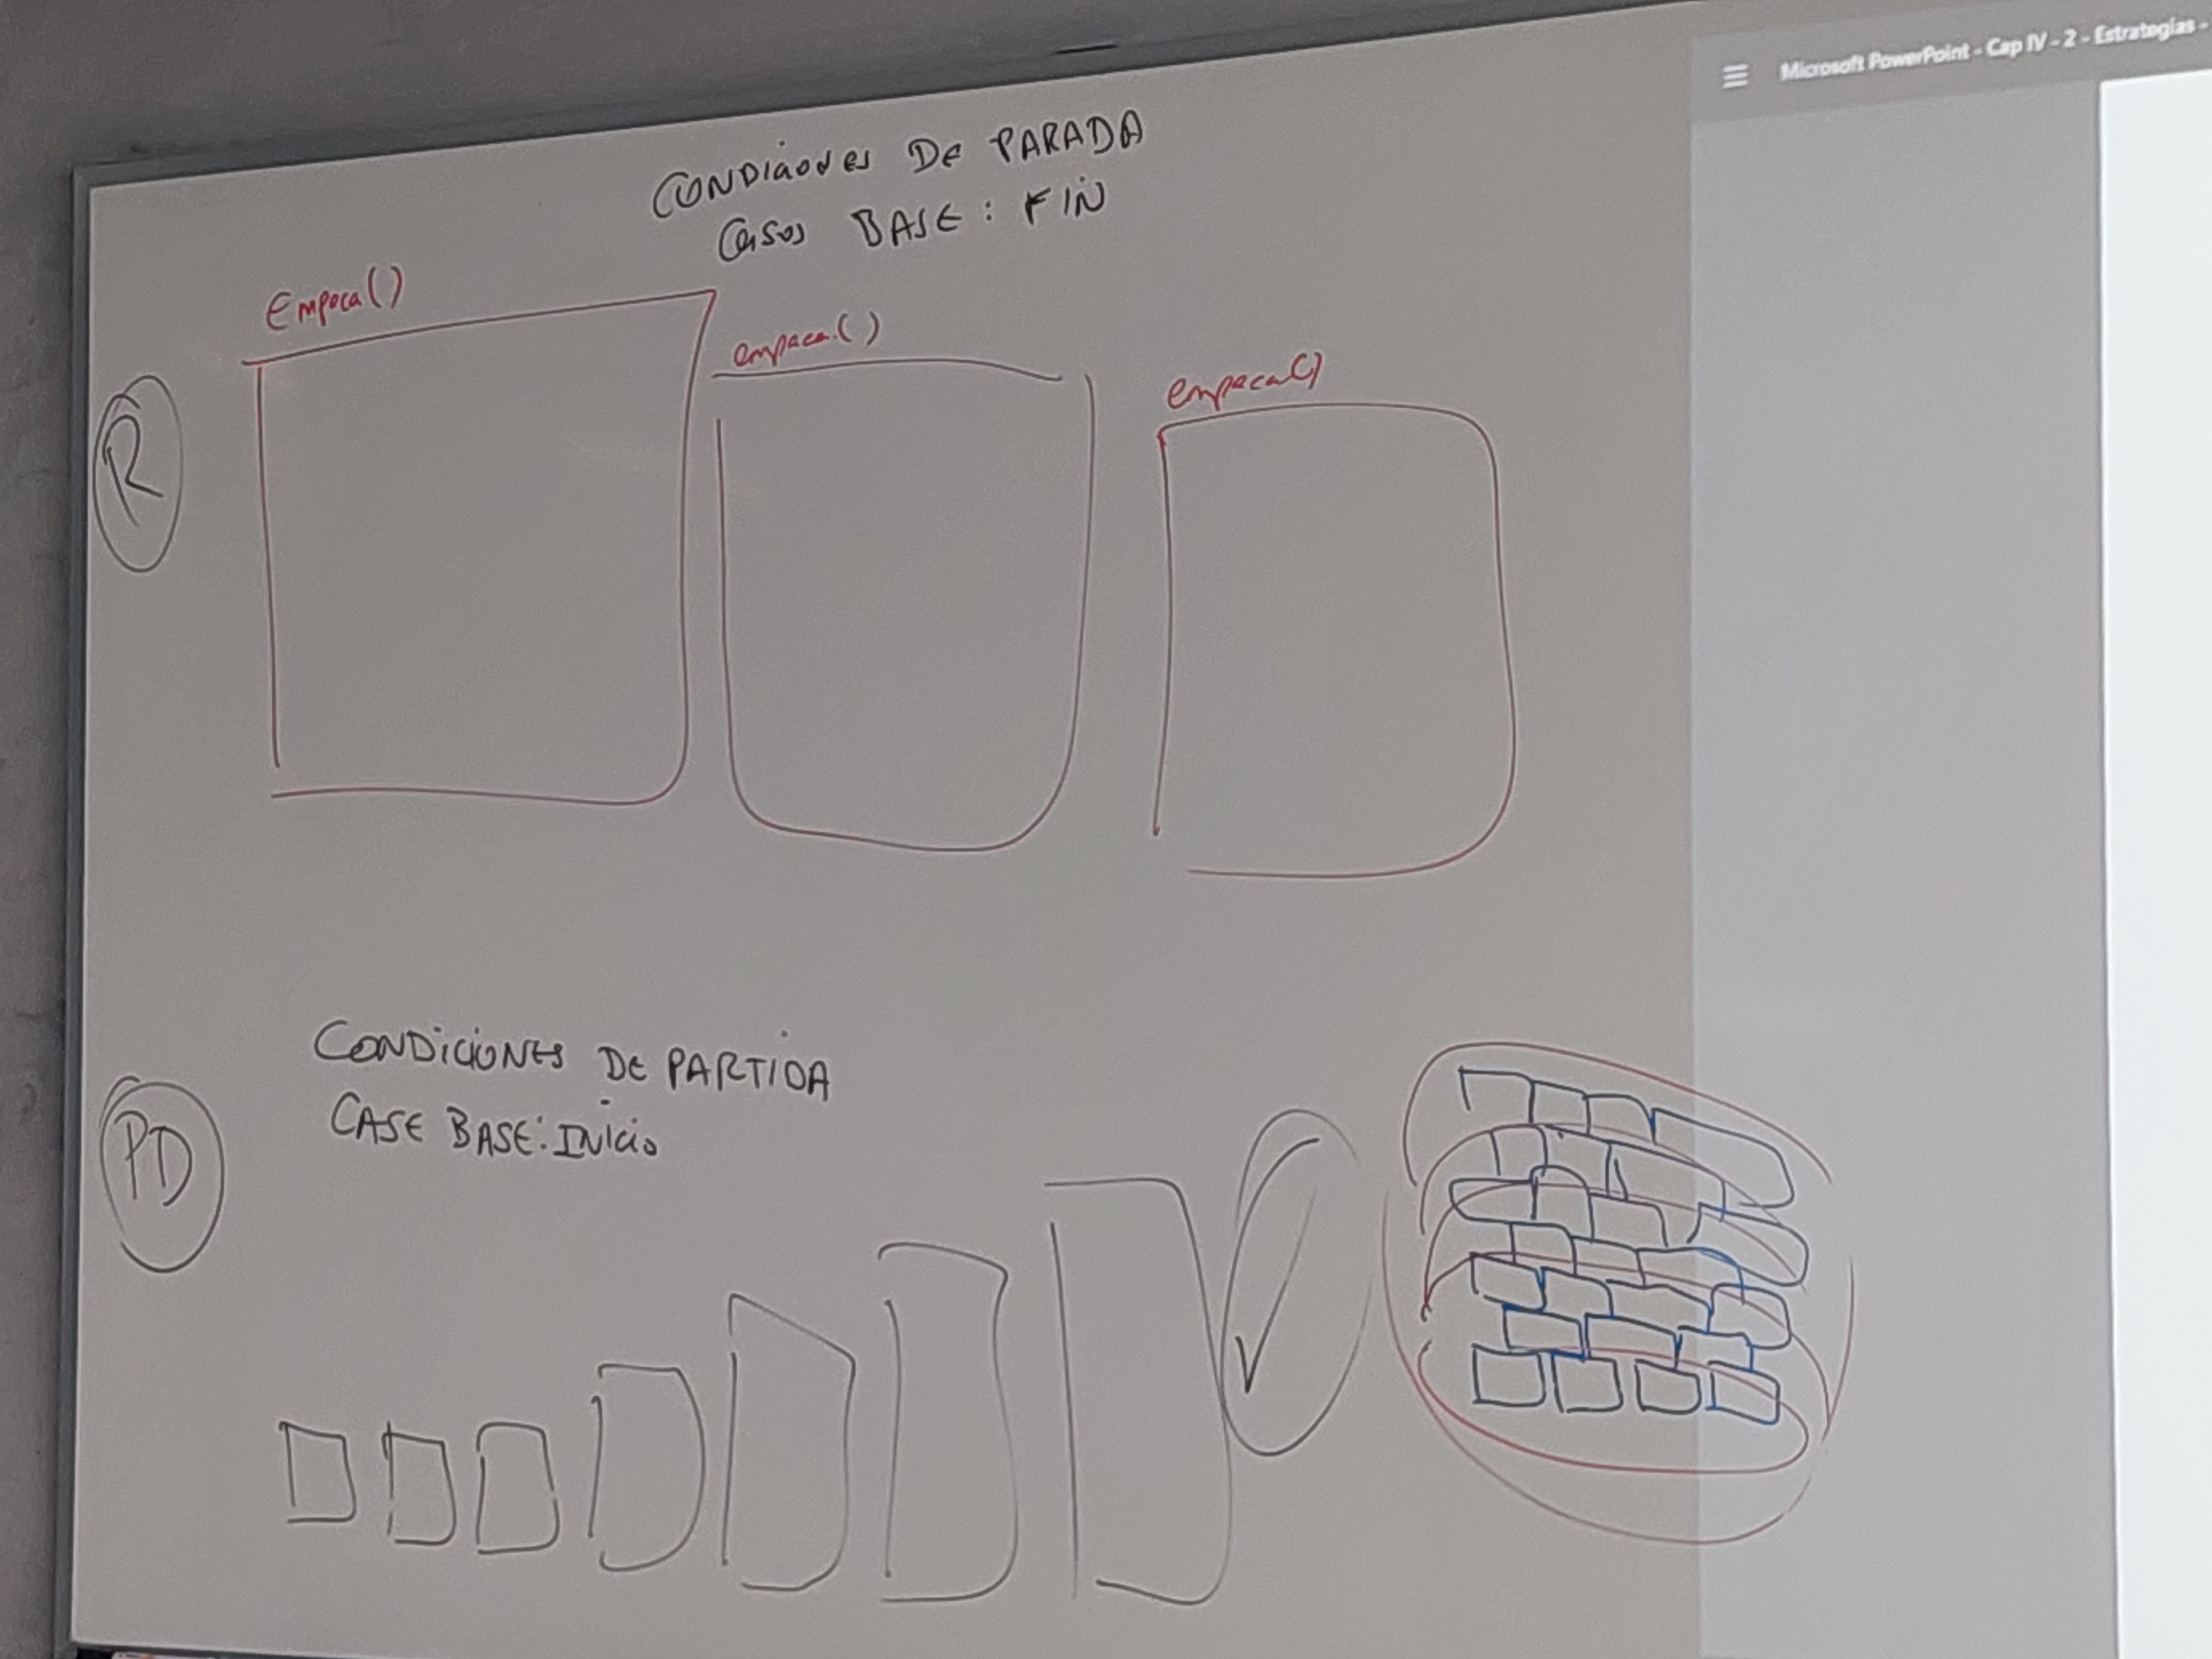 Microsoft PowerPoint - Cap IV - 2 - Estrategias -
CONDICIONES DE PARADA
CASOS BASE: FIN
Empaca()
empaca()
empaca()
R
CONDICIONES DE PARTIDA
CASE BASE: INICIO
PD